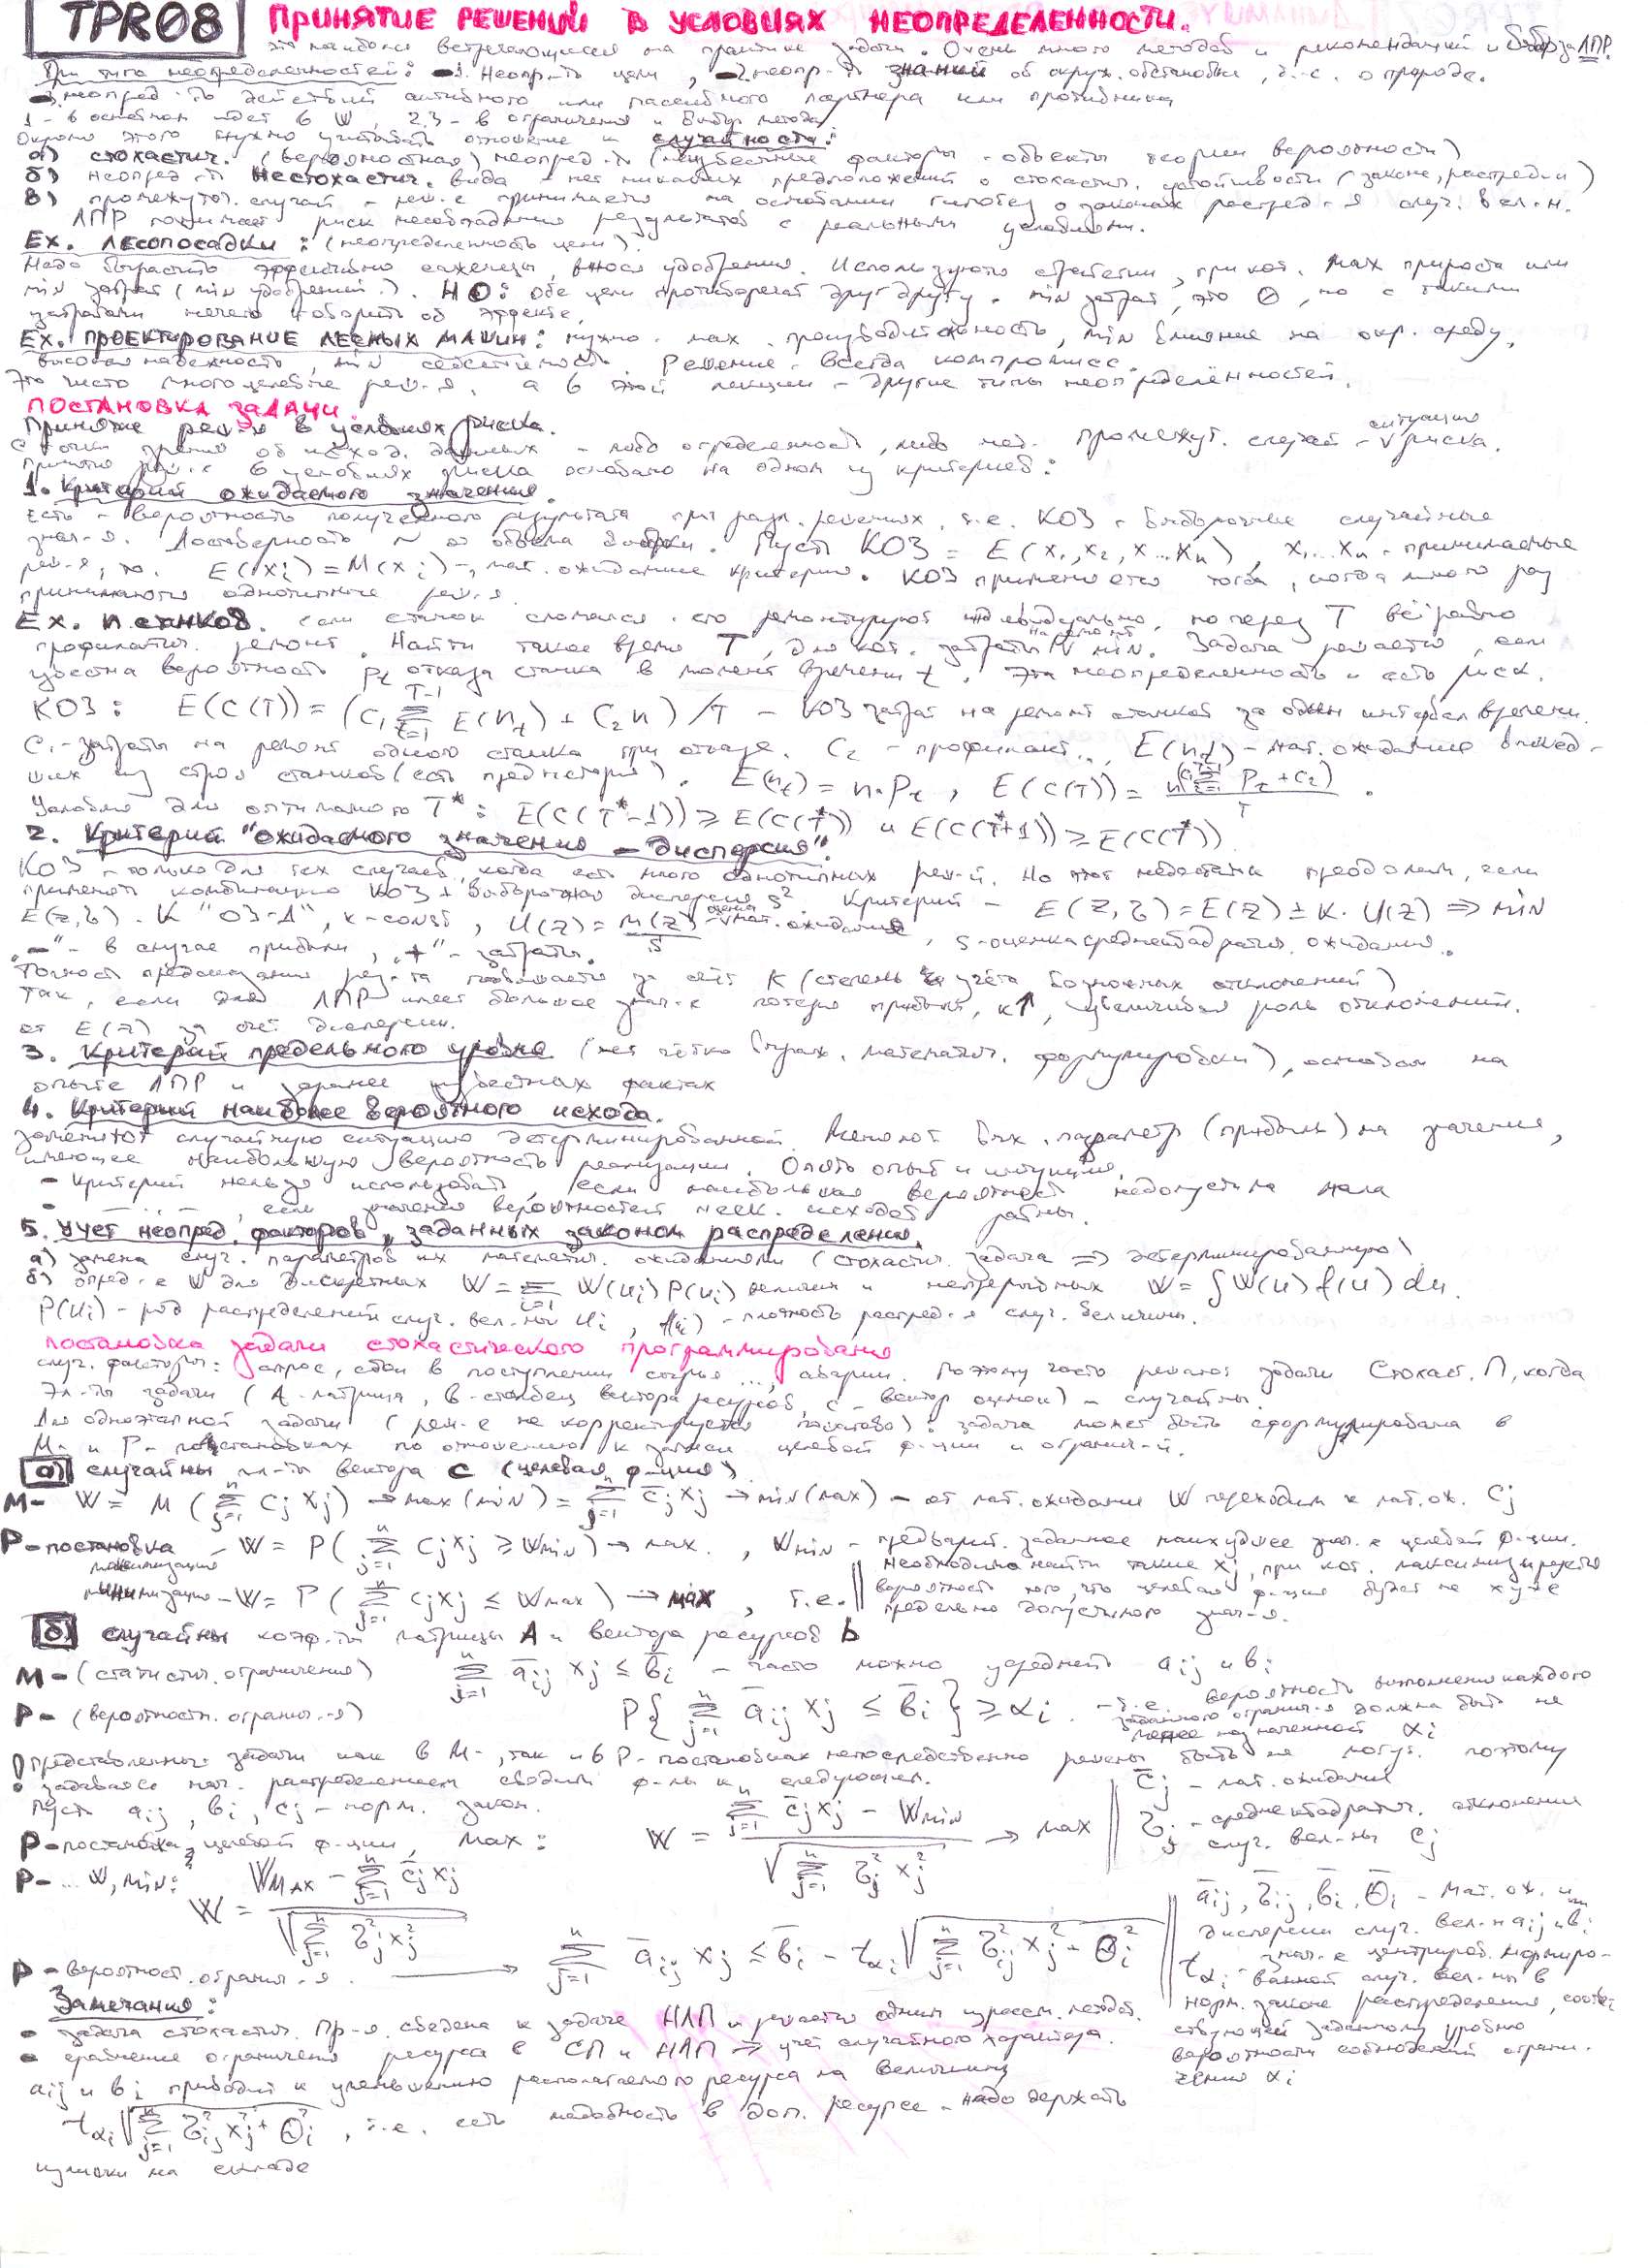 TPR08 ПРИНЯТИЕ РЕШЕНИЙ В УСЛОВИЯХ НЕОПРЕДЕЛЕННОСТИ.
это наиболее встречающиеся на практике задачи. Очень много методов и рекомендаций и выбор за ЛПР.
Три типа неопределенностей: -1. Неопр-ть цели, -2. неопр-ть знаний об окруж. обстановке, т.е. о природе.
-3 неопред-ть действий активного или пассивного партнера или противника
1 - в основном идет в W, 2,3 - в ограничения и выбор метода
Окромя этого нужно учитывать отношение к случайности:
а) стохастич. (вероятностная) неопред-ть (неизвестные факторы - объекты теории вероятности)
б) неопред-ть нестохастич. вида - нет никаких предположений о стохастич. устойчивости (законе распред-ии)
в) промежуточ. случай - реш-е принимается на основании гипотез о законах распред-я случ. вел-н.
ЛПР понимает риск несовпадения результатов с реальными условиями.
Ex. Лесопосадки: (неопределенность цели).
Надо вырастить эффективно саженцы, внося удобрения. Используют стратегии, при кот. max прироста или
min затрат (min удобрений.). НО: обе цели противоречат друг другу. min затрат, это 0, но с такими
затратами нечего говорить об эффекте.
Ex. ПРОЕКТИРОВАНИЕ ЛЕСНЫХ МАШИН: нужно max производительность, min влияние на окр. среду,
высокая надежность, min себестоимость. Решение - всегда компромисс.
Это чисто многоцелевые реш-я, а в этой лекции - другие типы неопределённостей.
ПОСТАНОВКА ЗАДАЧИ.
Принятие реш-я в условиях риска.
С точки зрения об исход. данных - либо определенность, либо нет. Промежут. случай - ситуация риска.
Принятие реш-я в условиях риска основано на одном из критериев:
1. Критерий ожидаемого значения.
Есть - вероятность полученного результата при разл. решениях, т.е. КОЗ - выборочные случайные
знач-я. Достоверность ~ от объема выборки. Пусть КОЗ = E(x₁, x₂, x...xₙ), x₁...xₙ - принимаемые
реш-я, то E(xᵢ) = M(xᵢ) -, мат. ожидание критерия. КОЗ применяется тогда, когда много раз
принимаются однотипные реш-я.
Ex. n станков. если станок сломался - его ремонтируют индивидуально, но перед T всё равно
профилактич. ремонт. Найти такое время T, для кот. затраты на ремонт min. Задача решается, если
известна вероятность pₜ отказа станка в момент времени t. Эта неопределенность и есть риск.
КОЗ: E(C(T)) = (C₁ Σₜ₌₁ᵀ⁻¹ E(nₜ) + C₂n)/T - КОЗ затрат на ремонт станков за один интервал времени.
C₁ - затраты на ремонт одного станка при отказе. C₂ - профилакт., E(nₜ) - мат. ожидание вышед-
ших из строя станков (есть предыстория). E(nₜ) = n·Pₜ, E(C(T)) = n(C₁ Σₜ₌₁ᵀ⁻¹ Pₜ + C₂)/T.
Условие для оптимального T*: E(C(T*-1)) ≥ E(C(T*)) и E(C(T*+1)) ≥ E(C(T*)).
2. Критерий "ожидаемого значения - дисперсия".
КОЗ - только для тех случаев, когда есть много однотипных реш-й. Но этот недостаток преодолим, если
применять комбинацию КОЗ + выборочная дисперсия S². Критерий - E(z,б) = E(z) ± K·U(z) ⇒ min
E(z,б) - К "ОЗ-Д", к-const, U(z) = M(z)/S - оценка мат. ожидания, S - оценка среднеквадратич. ожидания.
„-" - в случае прибыли, „+" - затраты.
Точность предсказания рез-та повышается за счёт K (степень учёта возможных отклонений)
Так, если для ЛПР имеет большое знач-е потеря прибыли, к↑, увеличивая роль отклонений
от E(z) за счёт дисперсии.
3. Критерий предельного уровня (нет чётко выраж. математич. формулировки), основан на
опыте ЛПР и заранее известных фактах
4. Критерий наиболее вероятного исхода.
заменяют случайную ситуацию детерминированной. Меняют вых. параметр (прибыль) на значение,
имеющее наибольшую вероятность реализации. Опять опыт и интуиция.
- Критерий нельзя использовать, если наибольшая вероятность недопустимо мала
- ... - ..., если значения вероятностей неск. исходов равны.
5. Учет неопред. факторов, заданных законом распределения.
а) замена случ. параметров их математич. ожиданиями (стохастич. задача ⇒ детерминированную)
б) опред-е W для дискретных W = Σᵢ₌₁ W(uᵢ)P(uᵢ) величин и непрерывных W = ∫W(u)f(u)du.
P(uᵢ) - ряд распределений случ. вел-ны uᵢ, f(uᵢ) - плотность распред-я случ. величины.
Постановка задачи стохастического программирования
случ. факторы: спрос, сбои в поступлении сырья ..., аварии. Поэтому часто решают задачи Стохаст. П, когда
эл-ты задачи (A - матрица, в - столбец вектора ресурсов, с - вектор оценок) - случайны.
Для одноэтапной задачи (реш-е не корректируется поэтапно): задача может быть сформулирована в
M- и P- постановках по отношению к записи целевой ф-ции и огранич-й.
а) случайны эл-ты вектора C (целевая ф-ция)
M- W = M(Σⱼ₌₁ⁿ cⱼxⱼ) → max (min) = Σⱼ₌₁ⁿ c̄ⱼxⱼ → min (max) - от мат. ожидания W переходим к мат. ож. cⱼ
P-постановка максимизация - W = P(Σⱼ₌₁ⁿ cⱼxⱼ ≥ Wmin) → max., Wmin - предварит. заданное наихудшее знач-е целевой ф-ции.
минимизация - W = P(Σⱼ₌₁ⁿ cⱼxⱼ ≤ Wmax) → max, т.е. необходимо найти такие xⱼ, при кот. максимизируется
вероятность того, что целевая ф-ция будет не хуже
предельно допустимого знач-я.
б) случайны коэф-ты матрицы A и вектора ресурсов b
M- (статистич. ограничения) Σⱼ₌₁ⁿ āᵢⱼxⱼ ≤ b̄ᵢ - часто можно усреднять aᵢⱼ и bᵢ
P- (вероятностн. огранич-я) P{Σⱼ₌₁ⁿ āᵢⱼxⱼ ≤ b̄ᵢ} ≥ αᵢ. - т.е. вероятность выполнения каждого
заданного огранич-я должна быть не
менее назначенной αᵢ
! Представленные задачи как в M-, так и в P- постановках непосредственно решены быть не могут. поэтому
задаваясь распределением сводим ф-лы к следующей.
Пусть aᵢⱼ, bᵢ, cⱼ - норм. закон.
P-постановка целевой ф-ции, max: W = (Σⱼ₌₁ⁿ c̄ⱼxⱼ - Wmin)/√(Σⱼ₌₁ⁿ σⱼ²xⱼ²) → max
c̄ⱼ - мат. ожидание
σⱼ - среднеквадратич. отклонение
случ. вел-ны cⱼ
P- ... W, min: W = (Wmax - Σⱼ₌₁ⁿ c̄ⱼxⱼ)/√(Σⱼ₌₁ⁿ σⱼ²xⱼ²)
P - вероятност. огранич-я. → Σⱼ₌₁ⁿ āᵢⱼxⱼ ≤ b̄ᵢ - tαᵢ√(Σⱼ₌₁ⁿ σᵢⱼ²xⱼ² + Θᵢ²)
āᵢⱼ, σ̄ᵢⱼ, b̄ᵢ, Θ̄ᵢ - мат. ож. и
дисперсии случ. вел-н aᵢⱼ и bᵢ
tαᵢ - знач-е центриров. нормиро-
ванной случ. вел-ны в
норм. законе распределения, соотве-
тствующей заданному уровню
вероятности соблюдений ограни-
чения αᵢ
Замечания:
- задача стохастич. пр-я сведена к задаче НЛП и решается одним из рассм. методов.
- сравнение ограничения ресурса в СП и НЛП ⇒ учёт случайного характера
aᵢⱼ и bᵢ приводит к уменьшению располагаемого ресурса на величину
tαᵢ√(Σⱼ₌₁ⁿ σᵢⱼ²xⱼ² + Θᵢ²), т.е. есть надобность в доп. ресурсе - надо держать
излишки на складе